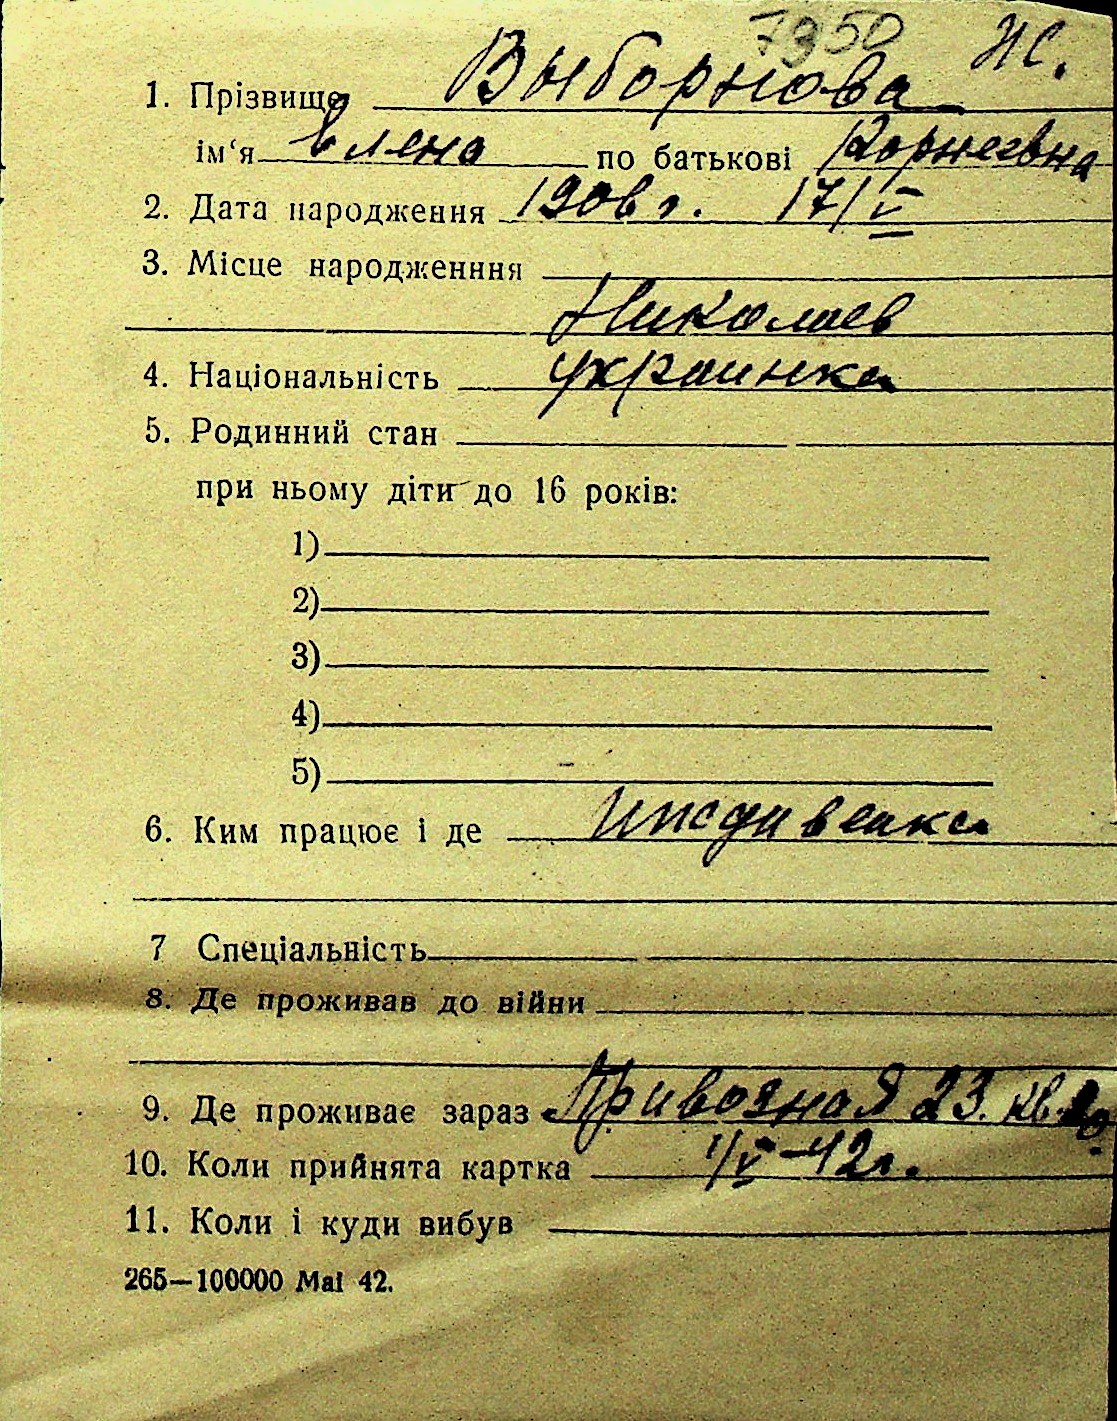 7950 Ж.
1. Прізвище Выборнова
ім‘я Елена по батькові Корнеевна
2. Дата народження 1906 г. 17/V
3. Місце народженння
Николаев
4. Національність украинка
5. Родинний стан
при ньому діти до 16 років:
1)
2)
3)
4)
5)
6. Ким працює і де Иждивенка
7 Спеціальність
8. Де проживав до війни
9. Де проживає зараз Привозная 23. кв.
10. Коли прийнята картка 1/V-42г.
11. Коли і куди вибув
265—100000 Маі 42.